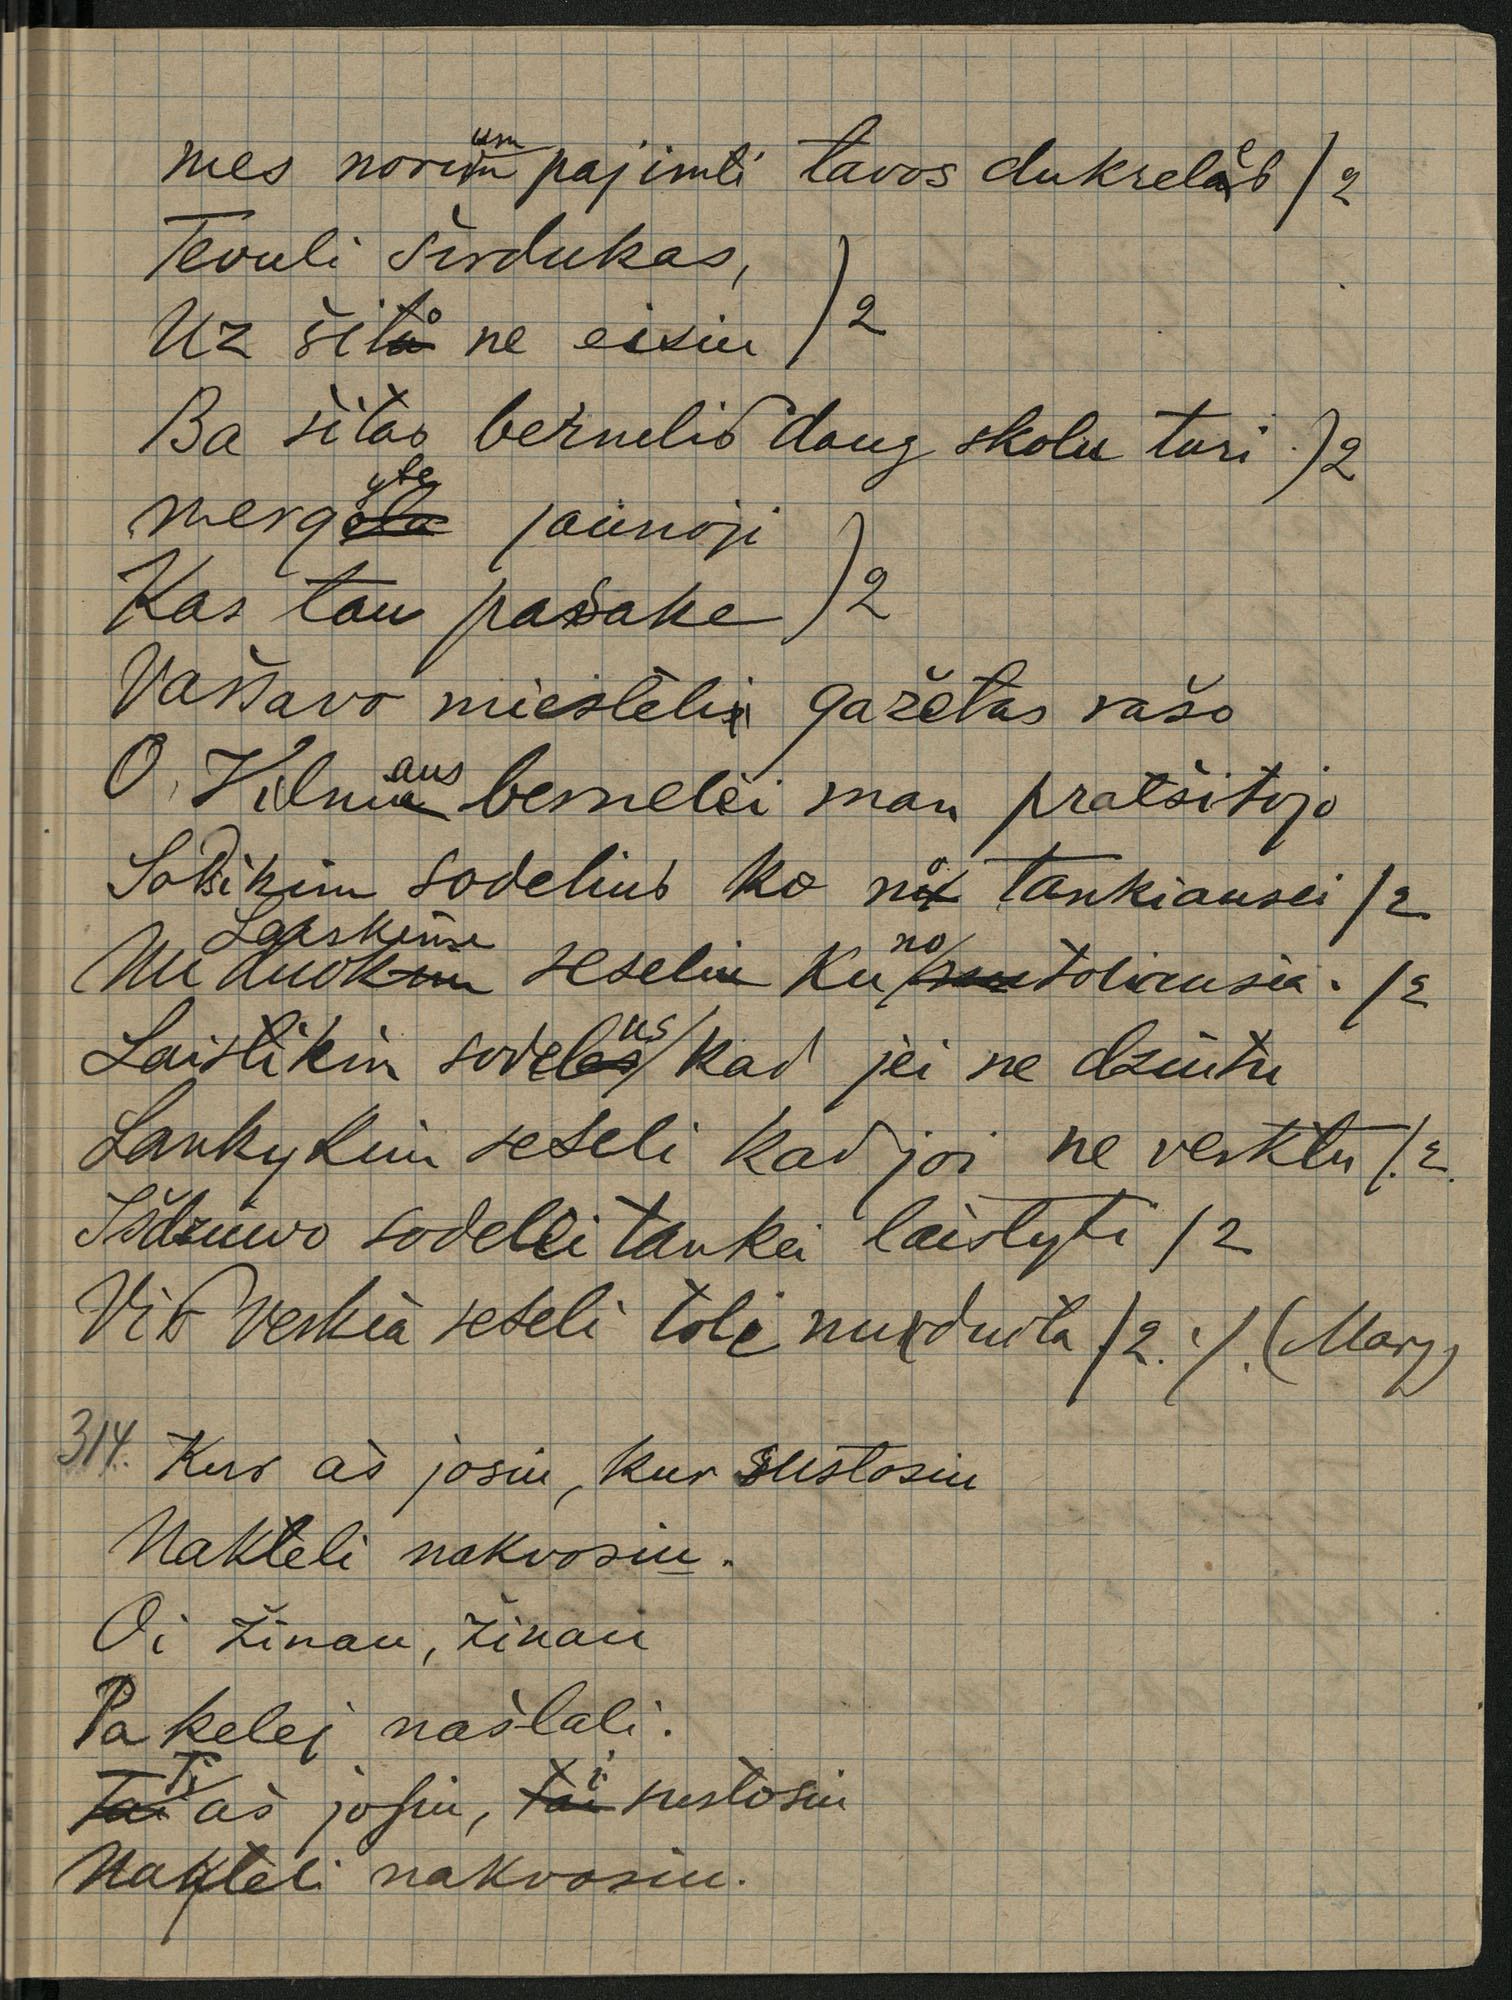 mes norium pajimti tavos dukrelės /2
Tevuli širdukas,
Uz šito ne eisiu )2
Ba šitas bernelis daug skolu turi )2
mergyte jaunoji
Kas tau pasake )2
Varšavo miesteli gažetas rašo
O Vilniaus bernelei man pratšitojo
Sodikim sodelius ko no tankiausei /2
Laiskime seseliu Ku no toliausia. /2
Laistikim sodelius kad jei ne dziutu
Lankykim seseli kad joi ne verktu /.2.
Išdziuvo sodelei tankei laistyti /2
Vis verkia seseli toli nuduota /2. ./. (Marg)
314. Kur aš josiu, kur sustosiu
Nakteli nakvosiu.
Oi žinau, žinau
Pa kelej našlali.
Ti aš josiu, ti sustosiu
Nakteli nakvosiu.